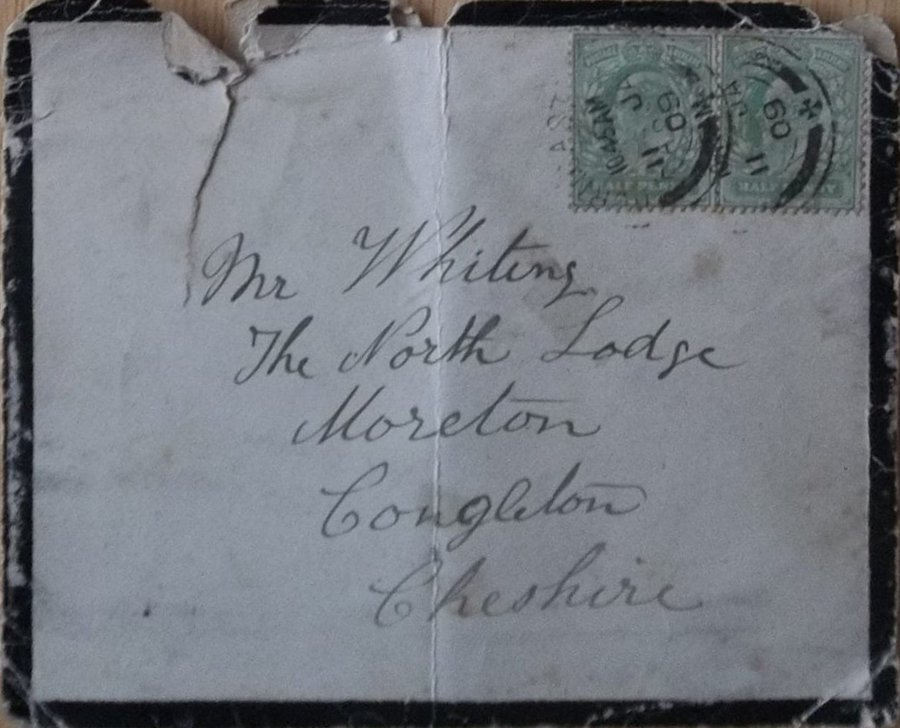 HALF PENNY
HALF PENNY
10.45AM
JA 11
09
JA 11
09
Mr Whiting
The North Lodge
Moreton
Congleton
Cheshire